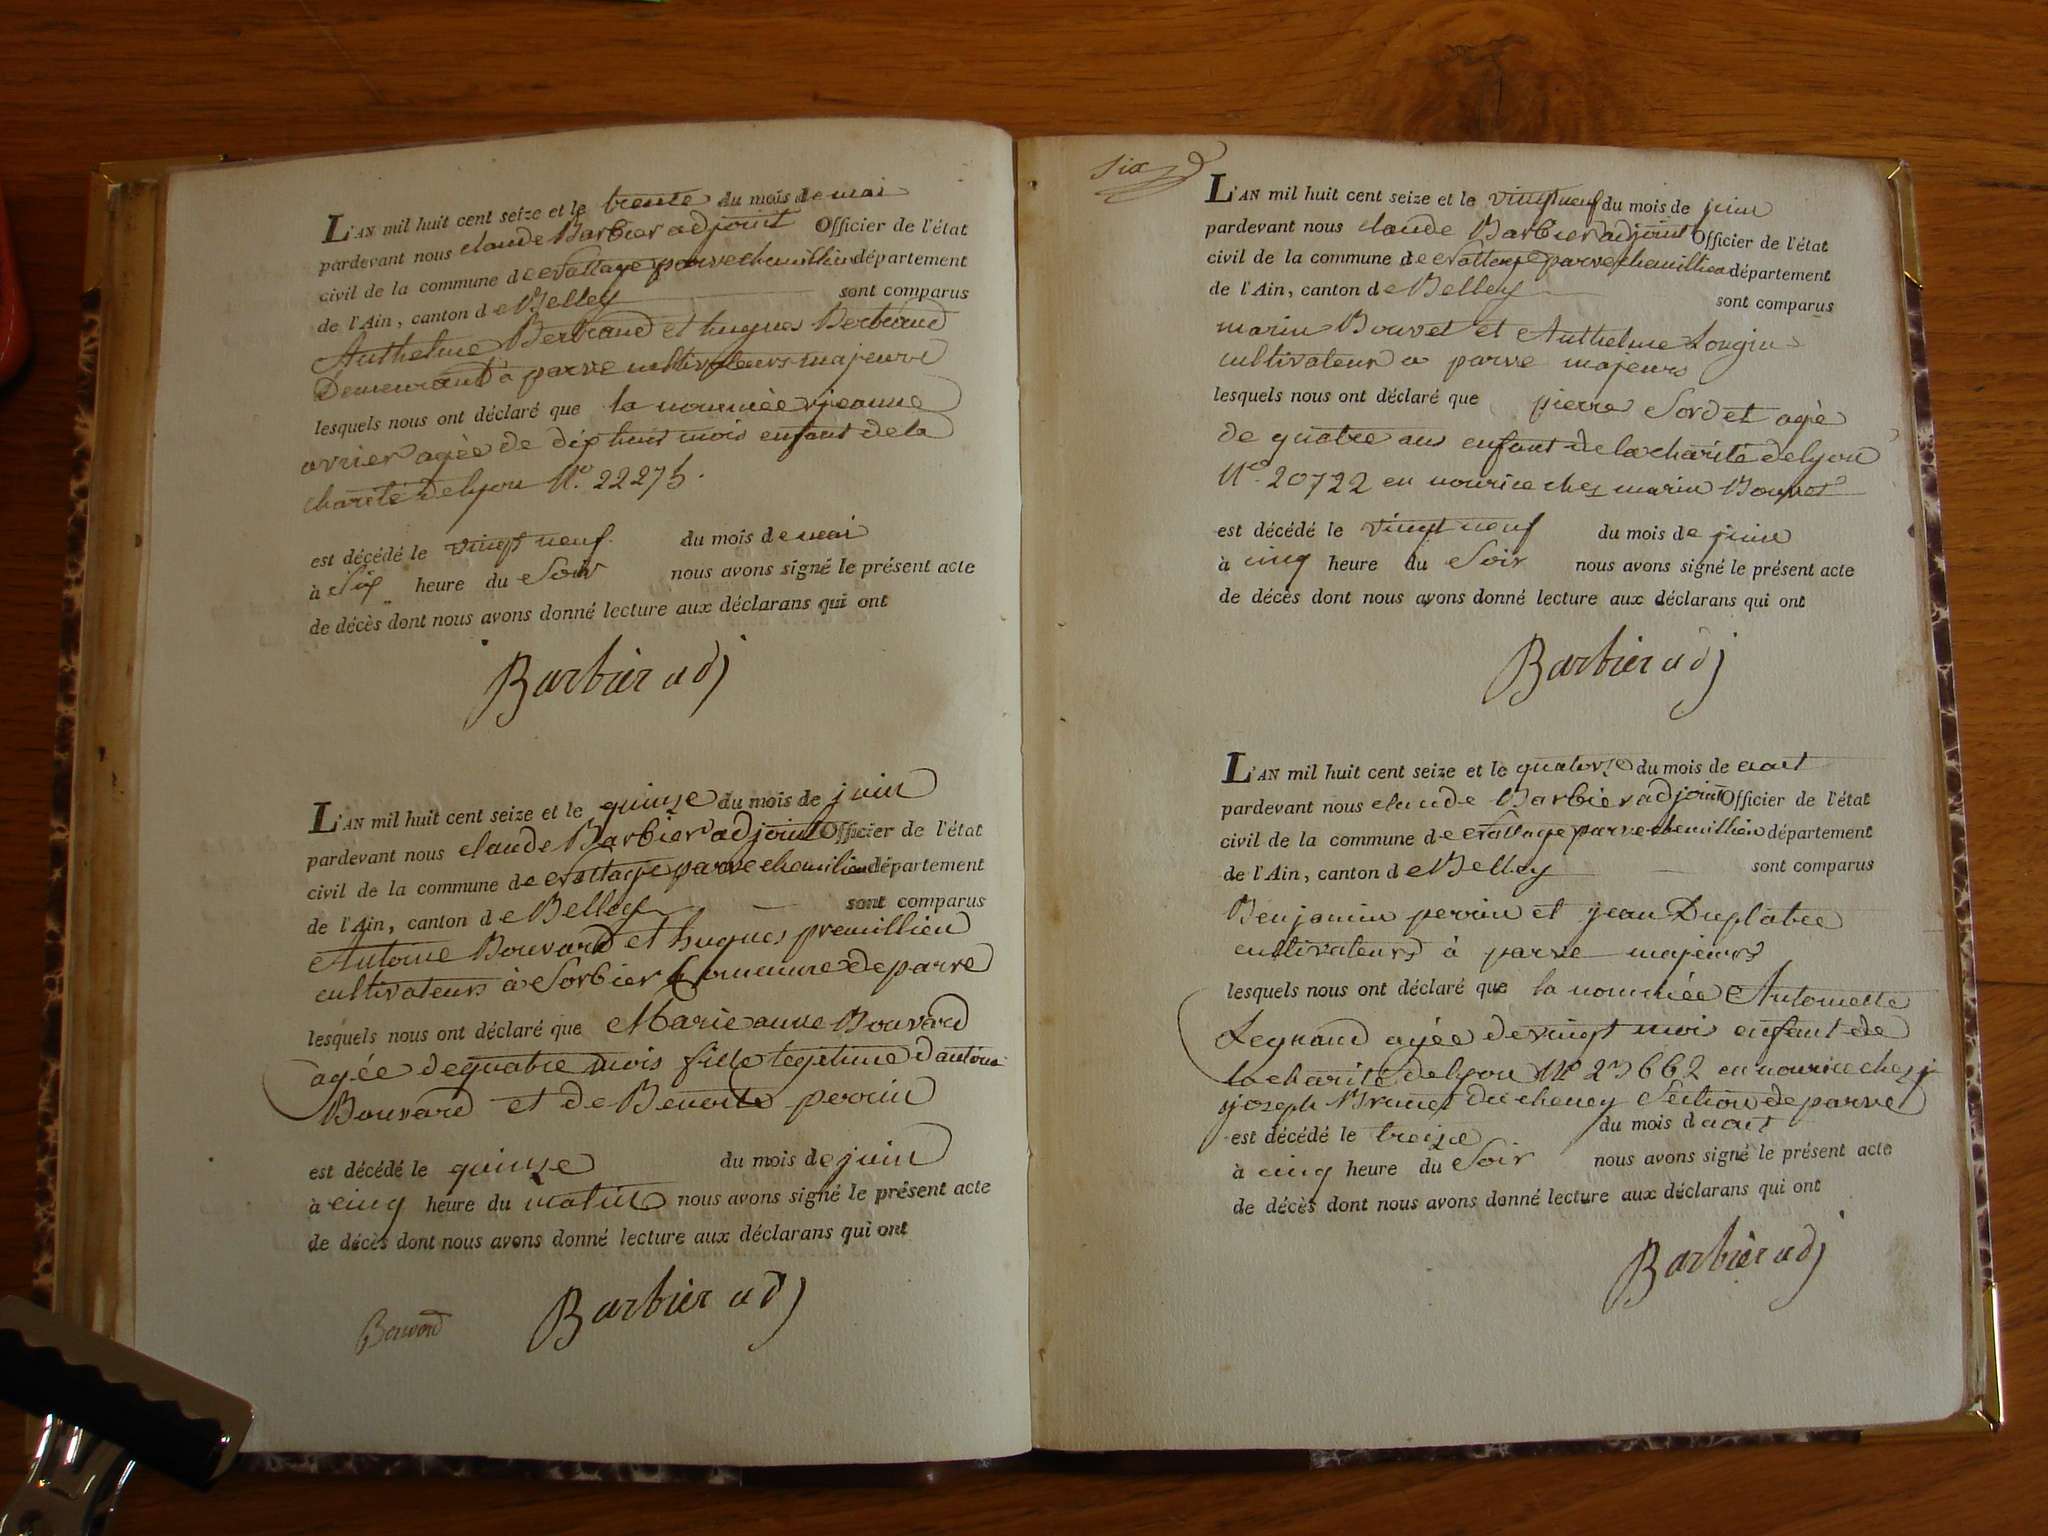 L'AN mil huit cent seize et le trente du mois de mai
pardevant nous claude Barbier adjoint Officier de l'état
civil de la commune de Nattage parve chemillieu département
de l'Ain, canton de Belley sont comparus
Anthelme Bertrand et hugues Bertrand
Demeurant a parve cultivateurs majeurs
lesquels nous ont déclaré que la nommée jeanne
agée de dix huit mois enfant de la
charité de lyon N.º 22275.
est décédé le vingt neuf du mois de mai
à Six heure du Soir nous avons signé le présent acte
de décès dont nous avons donné lecture aux déclarans qui ont
Barbier adj
L'AN mil huit cent seize et le quinze du mois de juin
pardevant nous claude Barbier adjoint Officier de l'état
civil de la commune de Nattage parve chemilieu département
de l'Ain, canton de Belley sont comparus
Antoine Bouvard et hugues premillieu
cultivateurs à Sorbier Commune de parve
lesquels nous ont déclaré que Marie anne Bouvard
agée de quatre mois fille légitime d'antoine
Bouvard et de Benoite perrin
est décédé le quinze du mois de juin
à cinq heure du matin nous avons signé le présent acte
de décès dont nous avons donné lecture aux déclarans qui ont
Bouvard Barbier adj
Six
L'AN mil huit cent seize et le vingt neuf du mois de juin
pardevant nous claude Barbier adjoint Officier de l'état
civil de la commune de Nattage parve chemillieu département
de l'Ain, canton de Belley sont comparus
marin Bouvet et Anthelme Longin
cultivateur a parve majeurs
lesquels nous ont déclaré que pierre Sordet agé
de quatre ans enfant de la charité de lyon
Nº 20722 en nourice chez marin Bouvet
est décédé le vingt neuf du mois de juin
à cinq heure du Soir nous avons signé le présent acte
de décès dont nous avons donné lecture aux déclarans qui ont
Barbier adj
L'AN mil huit cent seize et le quatorze du mois de aout
pardevant nous claude Barbier adjoint Officier de l'état
civil de la commune de Nattage parve chemillieu département
de l'Ain, canton de Belley sont comparus
Benjamin perrin et jean Duplatre
cultivateurs à parve majeurs
lesquels nous ont déclaré que la nommée Antoinette
Legrand agée de vingt mois enfant de
la charité de lyon Nº 23662 en nourice chez
joseph Brunet du cheney Section de parve
est décédé le treize du mois d aout
à cinq heure du Soir nous avons signé le présent acte
de décès dont nous avons donné lecture aux déclarans qui ont
Barbier adj